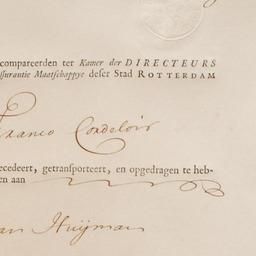 compareerden ter Kamer der DIRECTEURS
ssurantie Maatschappye deser Stad ROTTERDAM
Franco Cordelois
ecedeert, getransporteert, en opgedragen te heb-
en aan
an Huijman